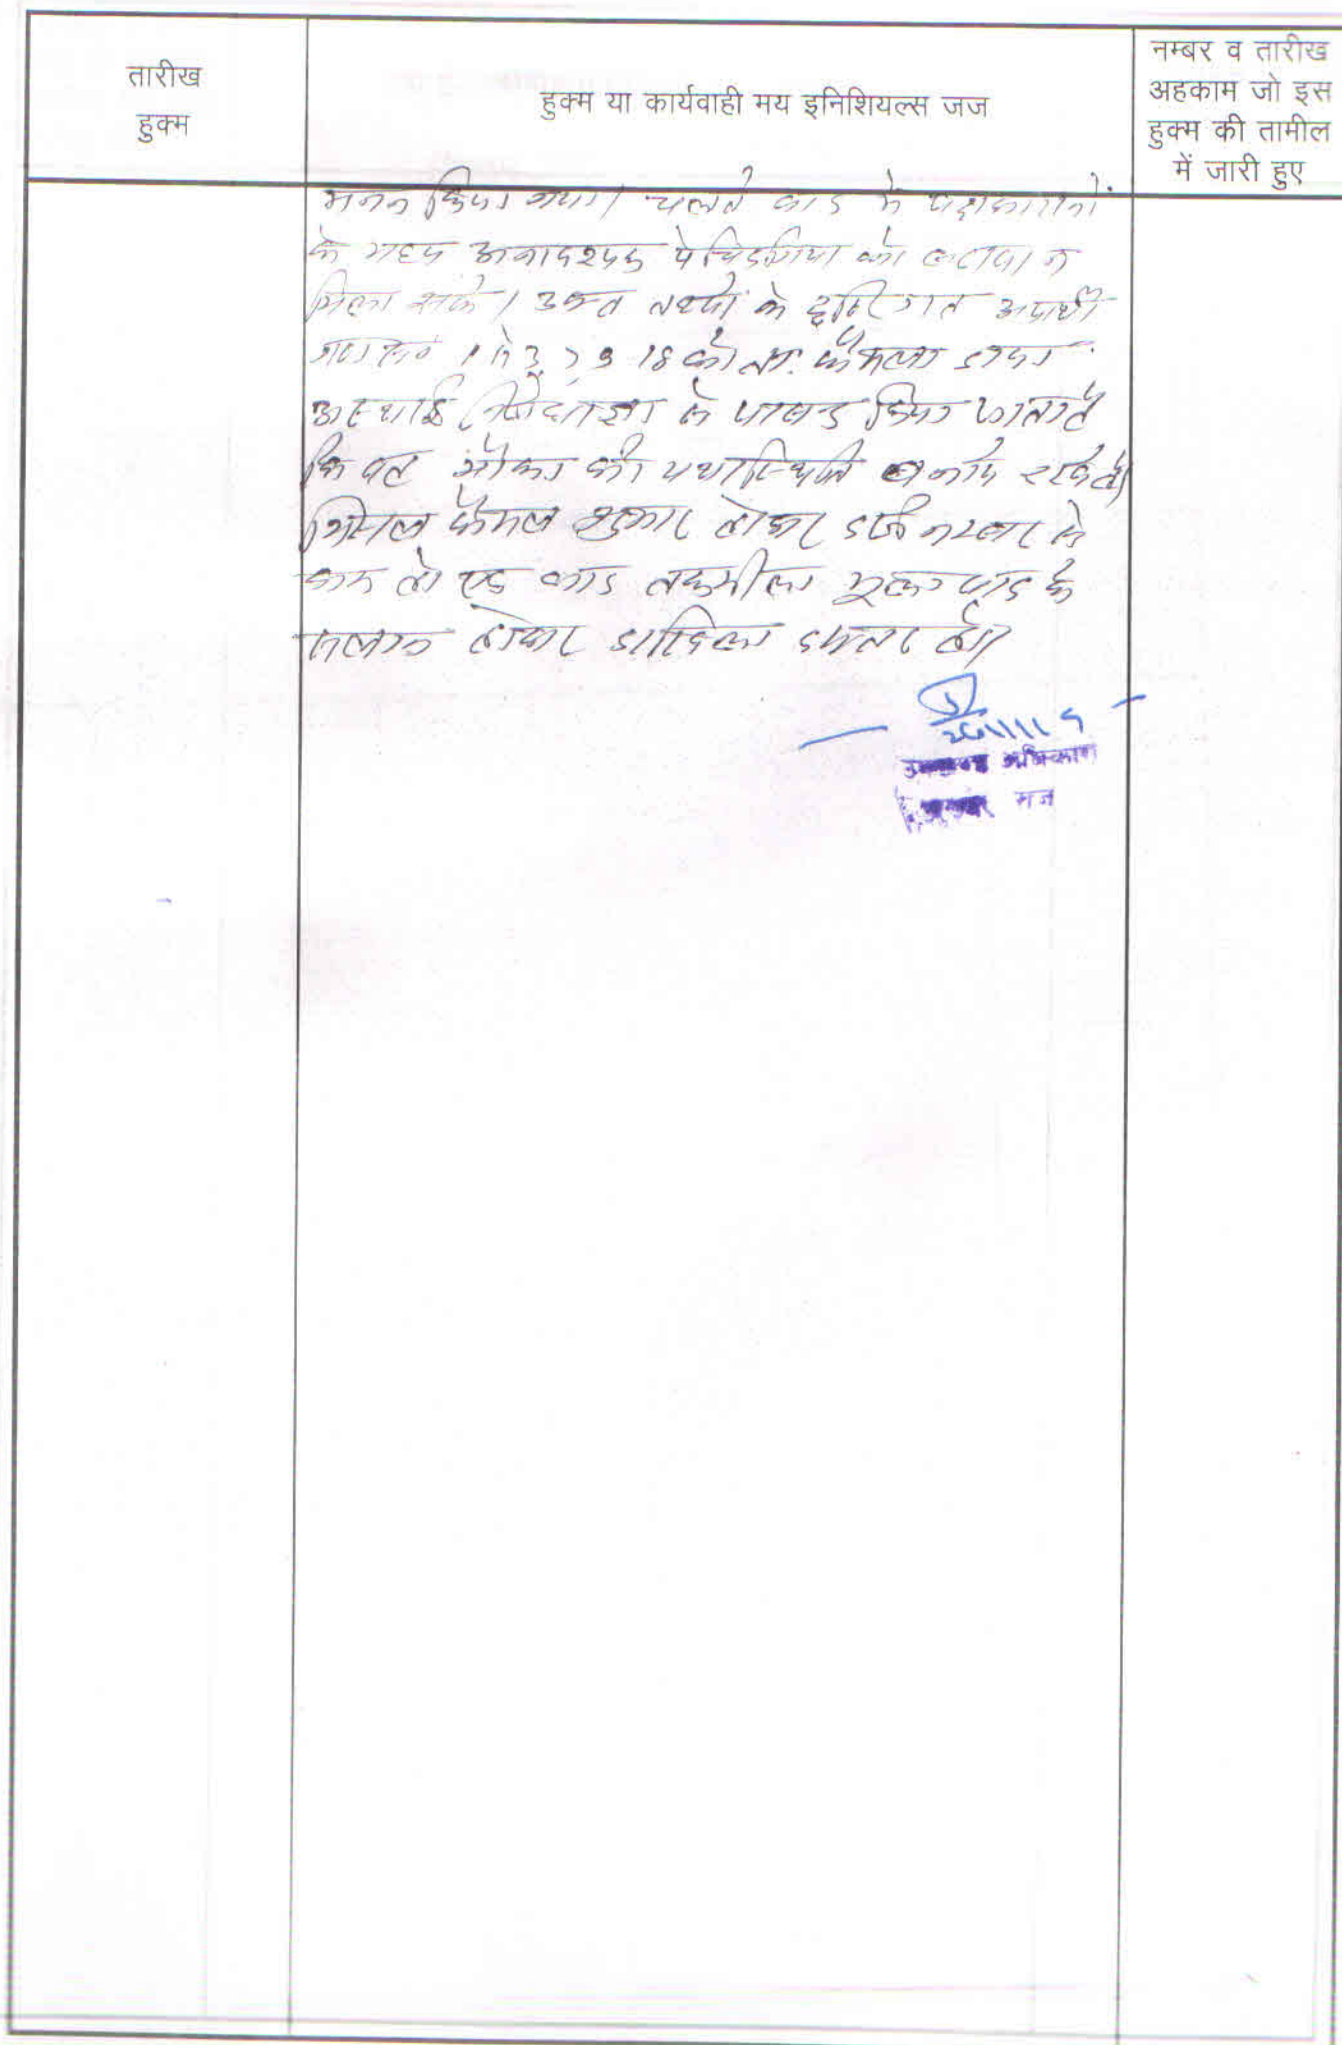 तारीख
हुक्म
हुक्म या कार्यवाही मय इनिशियल्स जज
नम्बर व तारीख
अहकाम जो इस
हुक्म की तामील
में जारी हुए
मनन किया गया। चलते वाद में पक्षकारानों
के मध्य अनावश्यक पेचिदगिया को बढावा न
मिल सके। उक्त तथ्यों के दृष्टिगत अप्रार्थी
गण 1 18 को ता. फैसला
अस्थाई निषेधाज्ञा से पाबन्द किया जाता है
कि वह मौका की यथास्थिति बनाये रखेंगे।
मिसल फैसल शुमार होकर दर्ज नम्बर से
कम हो एवं बाद तकमील मूल वाद के
संलग्न होकर दाखिल दफ्तर हो।
अधिकारी